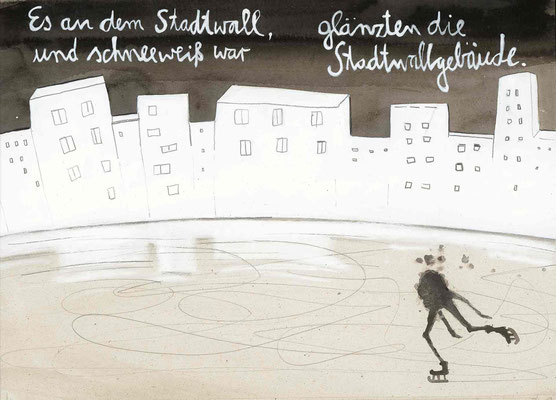 Es an dem Stadtwall, glänzten die
und schneeweiß war Stadtwallgebäude.